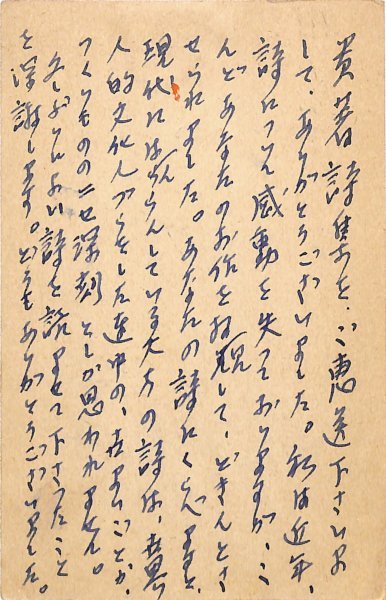 貴著詩集を、ご恵送下さいま
して、ありがとうございました。私は近年、
詩について感動を失っておりますが、こ
んどあなたのお作を拝見して、どきんとさ
せられました。あなたの詩にくらべますと、
現代にはんらんしている大方の詩は、
人的文化人づらをした連中の、
つくりもののニセ深刻としか思われません。
久しぶりによい詩を読ませて下さったこと
を深謝します。どうもありがとうございました。